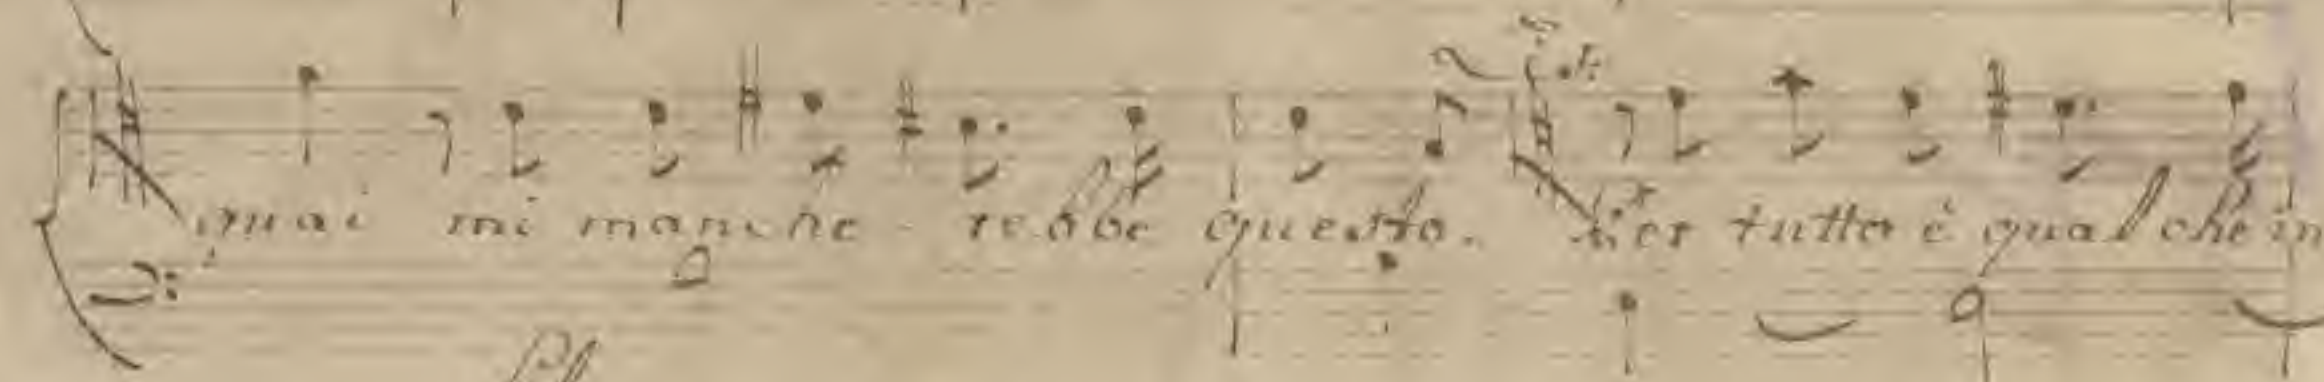 mai mi manche - rebbe questo. Per tutto è qualche in